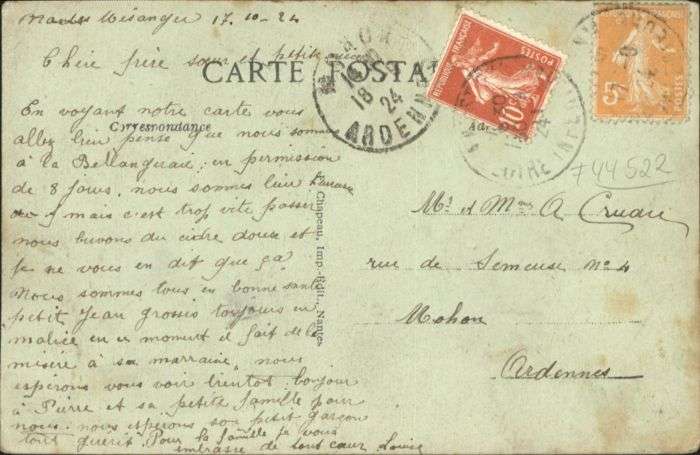 Mésanger 17-10-24
Chère frère sœur et petite nièce
CARTE POSTALE
Correspondance
En voyant notre carte vous
allez bien pensé que nous sommes
à la Bellangeraie en permission
de 8 jours, nous sommes bien heureux
mais c'est trop vite passer
nous buvons du cidre doux et
je ne vous en dit que ça
Nous sommes tous en bonne santé
petit Jean grossis toujours en
malice en ce moment il fait de la
misère à sa marraine, nous
esperons vous voir bientot. bonjour
à Pierre et sa petite famille pour
nous. nous esperons son petit garçon
tout guerit. Pour la famille je vous
embrasse de tout cœur Louise
Chapeau, Imp.-Edit., Nantes
MOHON
18
24
ARDENNES
REPUBLIQUE FRANÇAISE
POSTES
10c
5c
744522
Mr et Mme A Cruau
rue de Semeuse No 4
Mohon
Ardennes